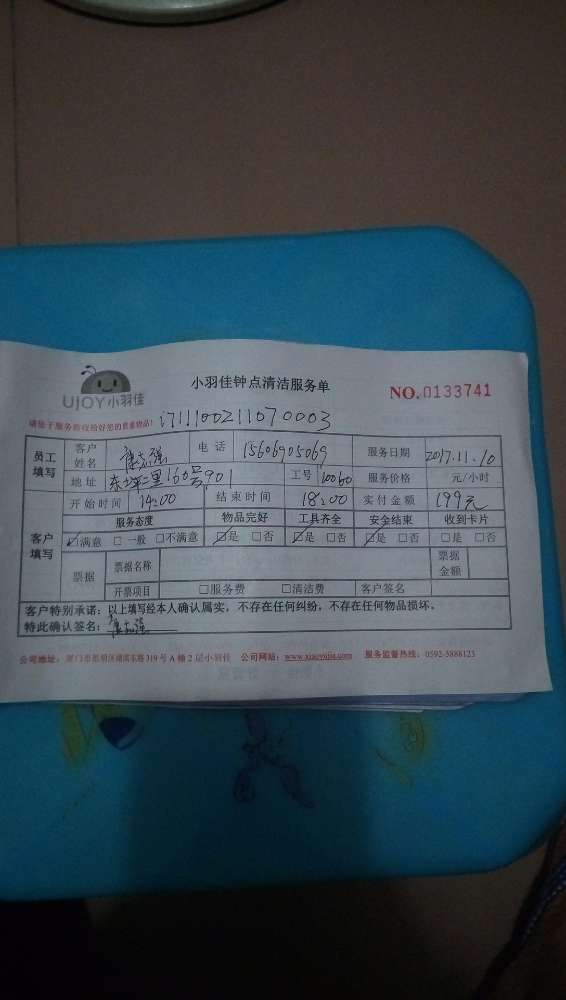 小羽佳钟点清洁服务单
NO.0133741
UJOY小羽佳
i711100211070003
员工填写 客户姓名 电话 15606905069 服务日期 2017.11.10
地址 东坪二里160号901 工号 10060 服务价格 元/小时
客户填写 开始时间 14:00 结束时间 18:00 实付金额 199元
服务态度 物品完好 工具齐全 安全结束 收到卡片
☑满意 □一般 □不满意 ☑是 □否 ☑是 □否 ☑是 □否 □是 □否
票据 票据名称 票据金额
开票项目 □服务费 □清洁费 客户签名
客户特别承诺：以上填写经本人确认属实，不存在任何纠纷，不存在任何物品损坏。
特此确认签名：
公司地址： 319号A幢2层小羽佳 公司网站：www.xiaoyujia.com 服务监督热线：0592-5888123